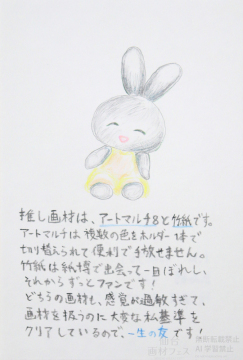 推し画材は、アートマルチ8と竹紙です。
アートマルチは複数の色をホルダー1本で
切り替えられて便利で手放せません。
竹紙は紙博で出会って一目ぼれし、
それからずっとファンです！
どちらの画材も、感覚が過敏すぎて、
画材を扱うのに大変な私基準を
クリアしているので、一生の友です！
無断転載禁止